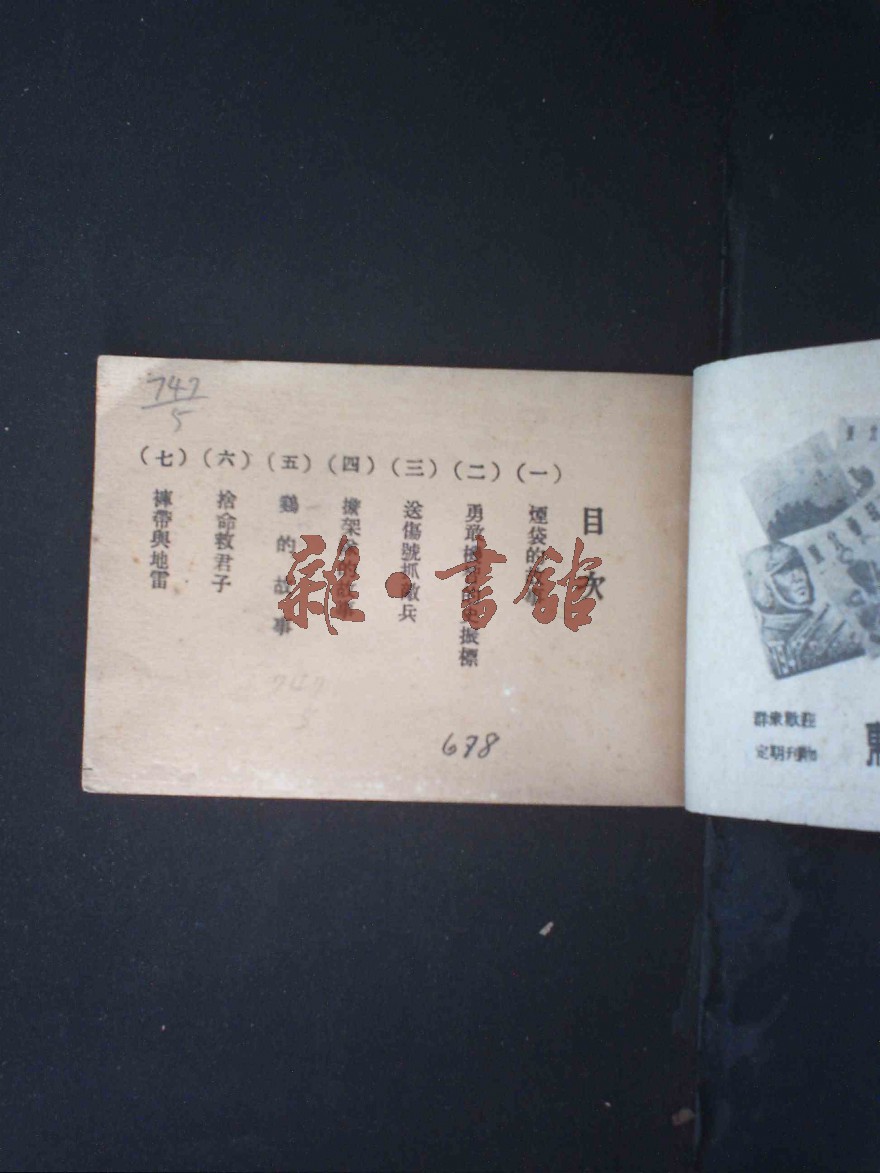 目次
(一) 煙袋的故事
(二) 勇敢 的史振標
(三) 送傷號抓敵兵
(四) 擔架 的故事
(五) 鷄的故事
(六) 捨命救君子
(七) 褲帶與地雷
747
5
747
5
678
雜·書館
群衆歡迎
定期刊物